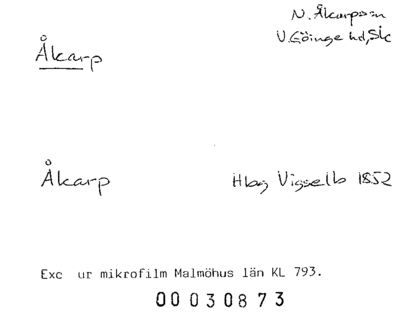 N. Åkarpssn
V. Göinge hd, Slc
Åkarp
Åkarp Hbg Vigselb 1852
Exc ur mikrofilm Malmöhus län KL 793.
00030873